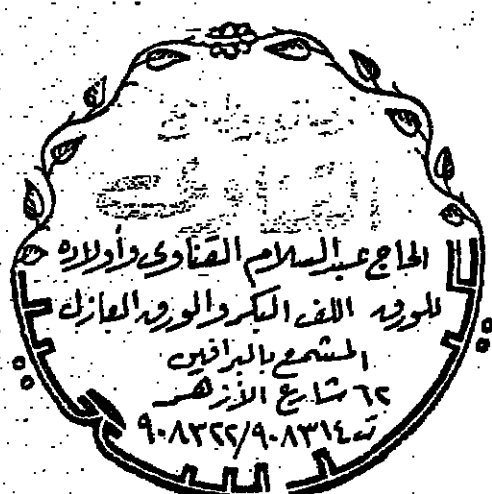 الحاج عبدالسلام القناوى وأولاده
للورق اللف البكر والورق العازل
المشمع بالبرافين
٦٢ شارع الأزهر
ت ٩٠٨٣١٤/٩٠٨٣٢٢